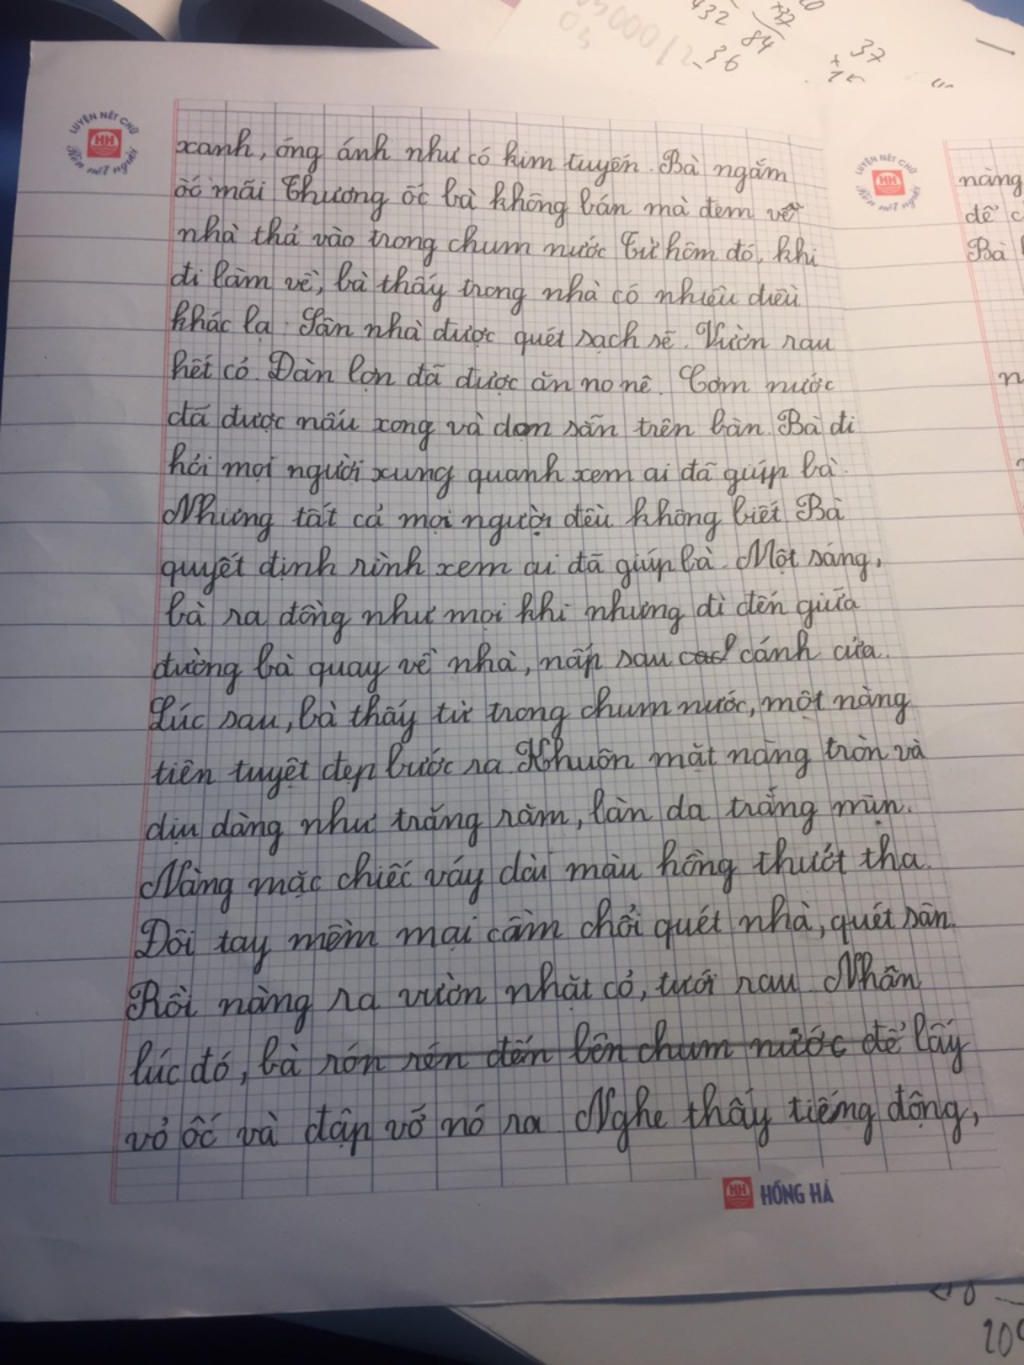 432
84
36
37
LUYỆN NÉT CHỮ
HH
Rèn nết người
xanh, óng ánh như có kim tuyến. Bà ngắm
ốc mãi Thương ốc bà không bán mà đem về
nhà thả vào trong chum nước Từ hôm đó, khi
đi làm về, bà thấy trong nhà có nhiều điều
khác lạ. Sân nhà được quét sạch sẽ. Vườn rau
hết cỏ. Đàn lợn đã được ăn no nê. Cơm nước
đã được nấu xong và dọn sẵn trên bàn. Bà đi
hỏi mọi người xung quanh xem ai đã giúp bà.
Nhưng tất cả mọi người đều không biết Bà
quyết định rình xem ai đã giúp bà. Một sáng,
bà ra đồng như mọi khi nhưng đi đến giữa
đường bà quay về nhà, nấp sau cánh cửa.
Lúc sau, bà thấy từ trong chum nước, một nàng
tiên tuyệt đẹp bước ra. Khuôn mặt nàng tròn và
dịu dàng như trăng rằm, làn da trắng mịn.
Nàng mặc chiếc váy dài màu hồng thướt tha.
Đôi tay mềm mại cầm chổi quét nhà, quét sân.
Rồi nàng ra vườn nhặt cỏ, tưới rau Nhân
lúc đó, bà rón rén đến bên chum nước để lấy
vỏ ốc và đập vỡ nó ra Nghe thấy tiếng động,
HH HỒNG HÀ
LUYỆN NÉT CHỮ
HH
Rèn nết người
nàng
để c
Bà
n